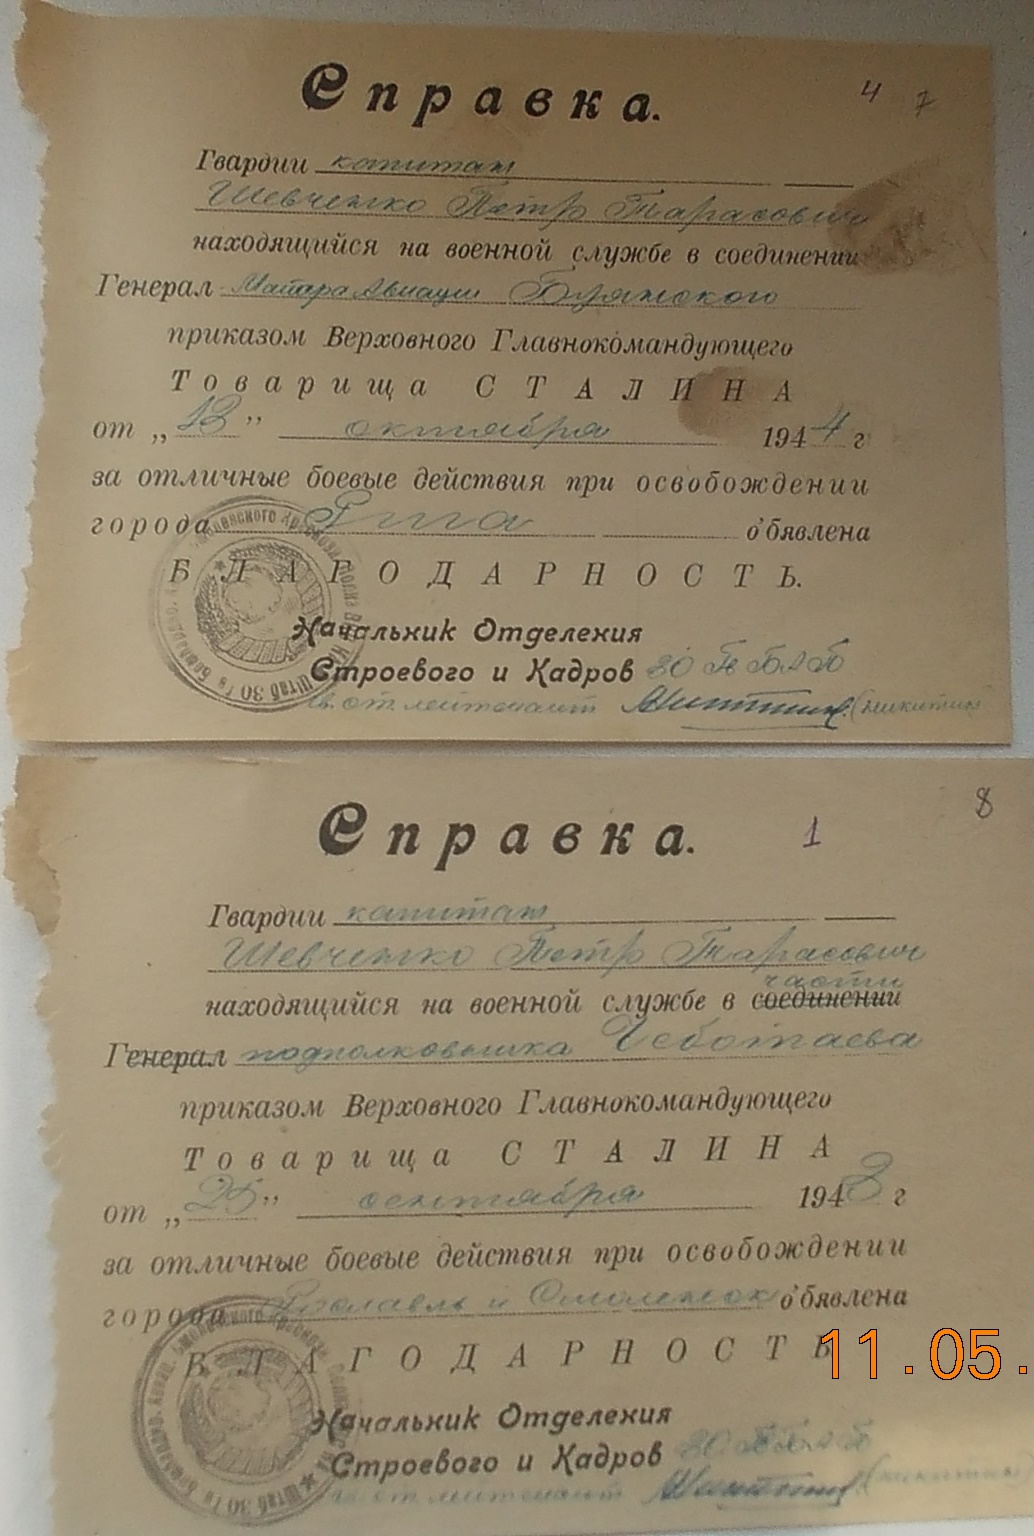 Справка.
4 7
Гвардии капитан
Шевченко Пётр Тарасович
находящийся на военной службе в соединении
Генерал Майора Авиации Буянского
приказом Верховного Главнокомандующего
Товарища СТАЛИНА
от „13" октября 1944 г
за отличные боевые действия при освобождении
города Рига о'бявлена
БЛАГОДАРНОСТЬ.
Начальник Отделения
Строевого и Кадров 30 Гв БАП
Гв. ст. лейтенант (Никитин)
Справка.
1 8
Гвардии капитан
Шевченко Петр Тарасович
части
находящийся на военной службе в соединении
Генерал подполковника Чеботаева
приказом Верховного Главнокомандующего
Товарища СТАЛИНА
от „25" сентября 1943 г
за отличные боевые действия при освобождении
города Рославль и Смоленск о'бявлена
БЛАГОДАРНОСТЬ
11.05.
Начальник Отделения
Строевого и Кадров
Гв. ст лейтенант (Никитин)